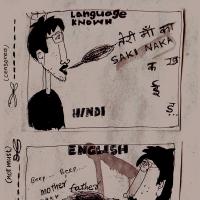 Language
KNOWN
(censored)
तेरी माँ का
SAKI NAKA
HINDI
(not must)
ENGLISH
Beep... Beep...
mother father